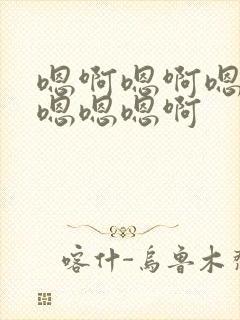 嗯啊嗯啊嗯
嗯嗯嗯啊
喀什-乌鲁木